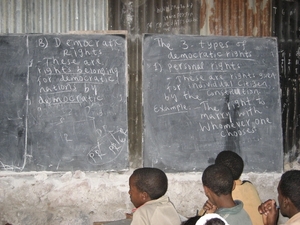 B) Democratic
Rights
- These are
rights belonging
to democratic
nations by
democratic
The 3 types of
democratic rights
1) Personal rights
- These are rights
for individual citizen
by the constitution
Example:- The right to
marry with
whomever one
chooses